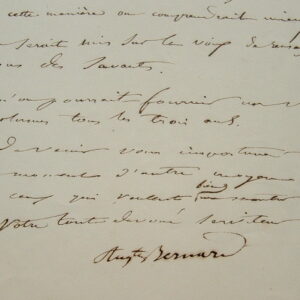 cette manière on comprendrait mieux
serait mis sur la voie de
des savants.
qu'on pourrait fournir un
volumes tous les trois ans.
devenir vous importuner
moment d'autre moyens
ceux qui veulent bien me
Votre tout dévoué serviteur
Augte Bernard